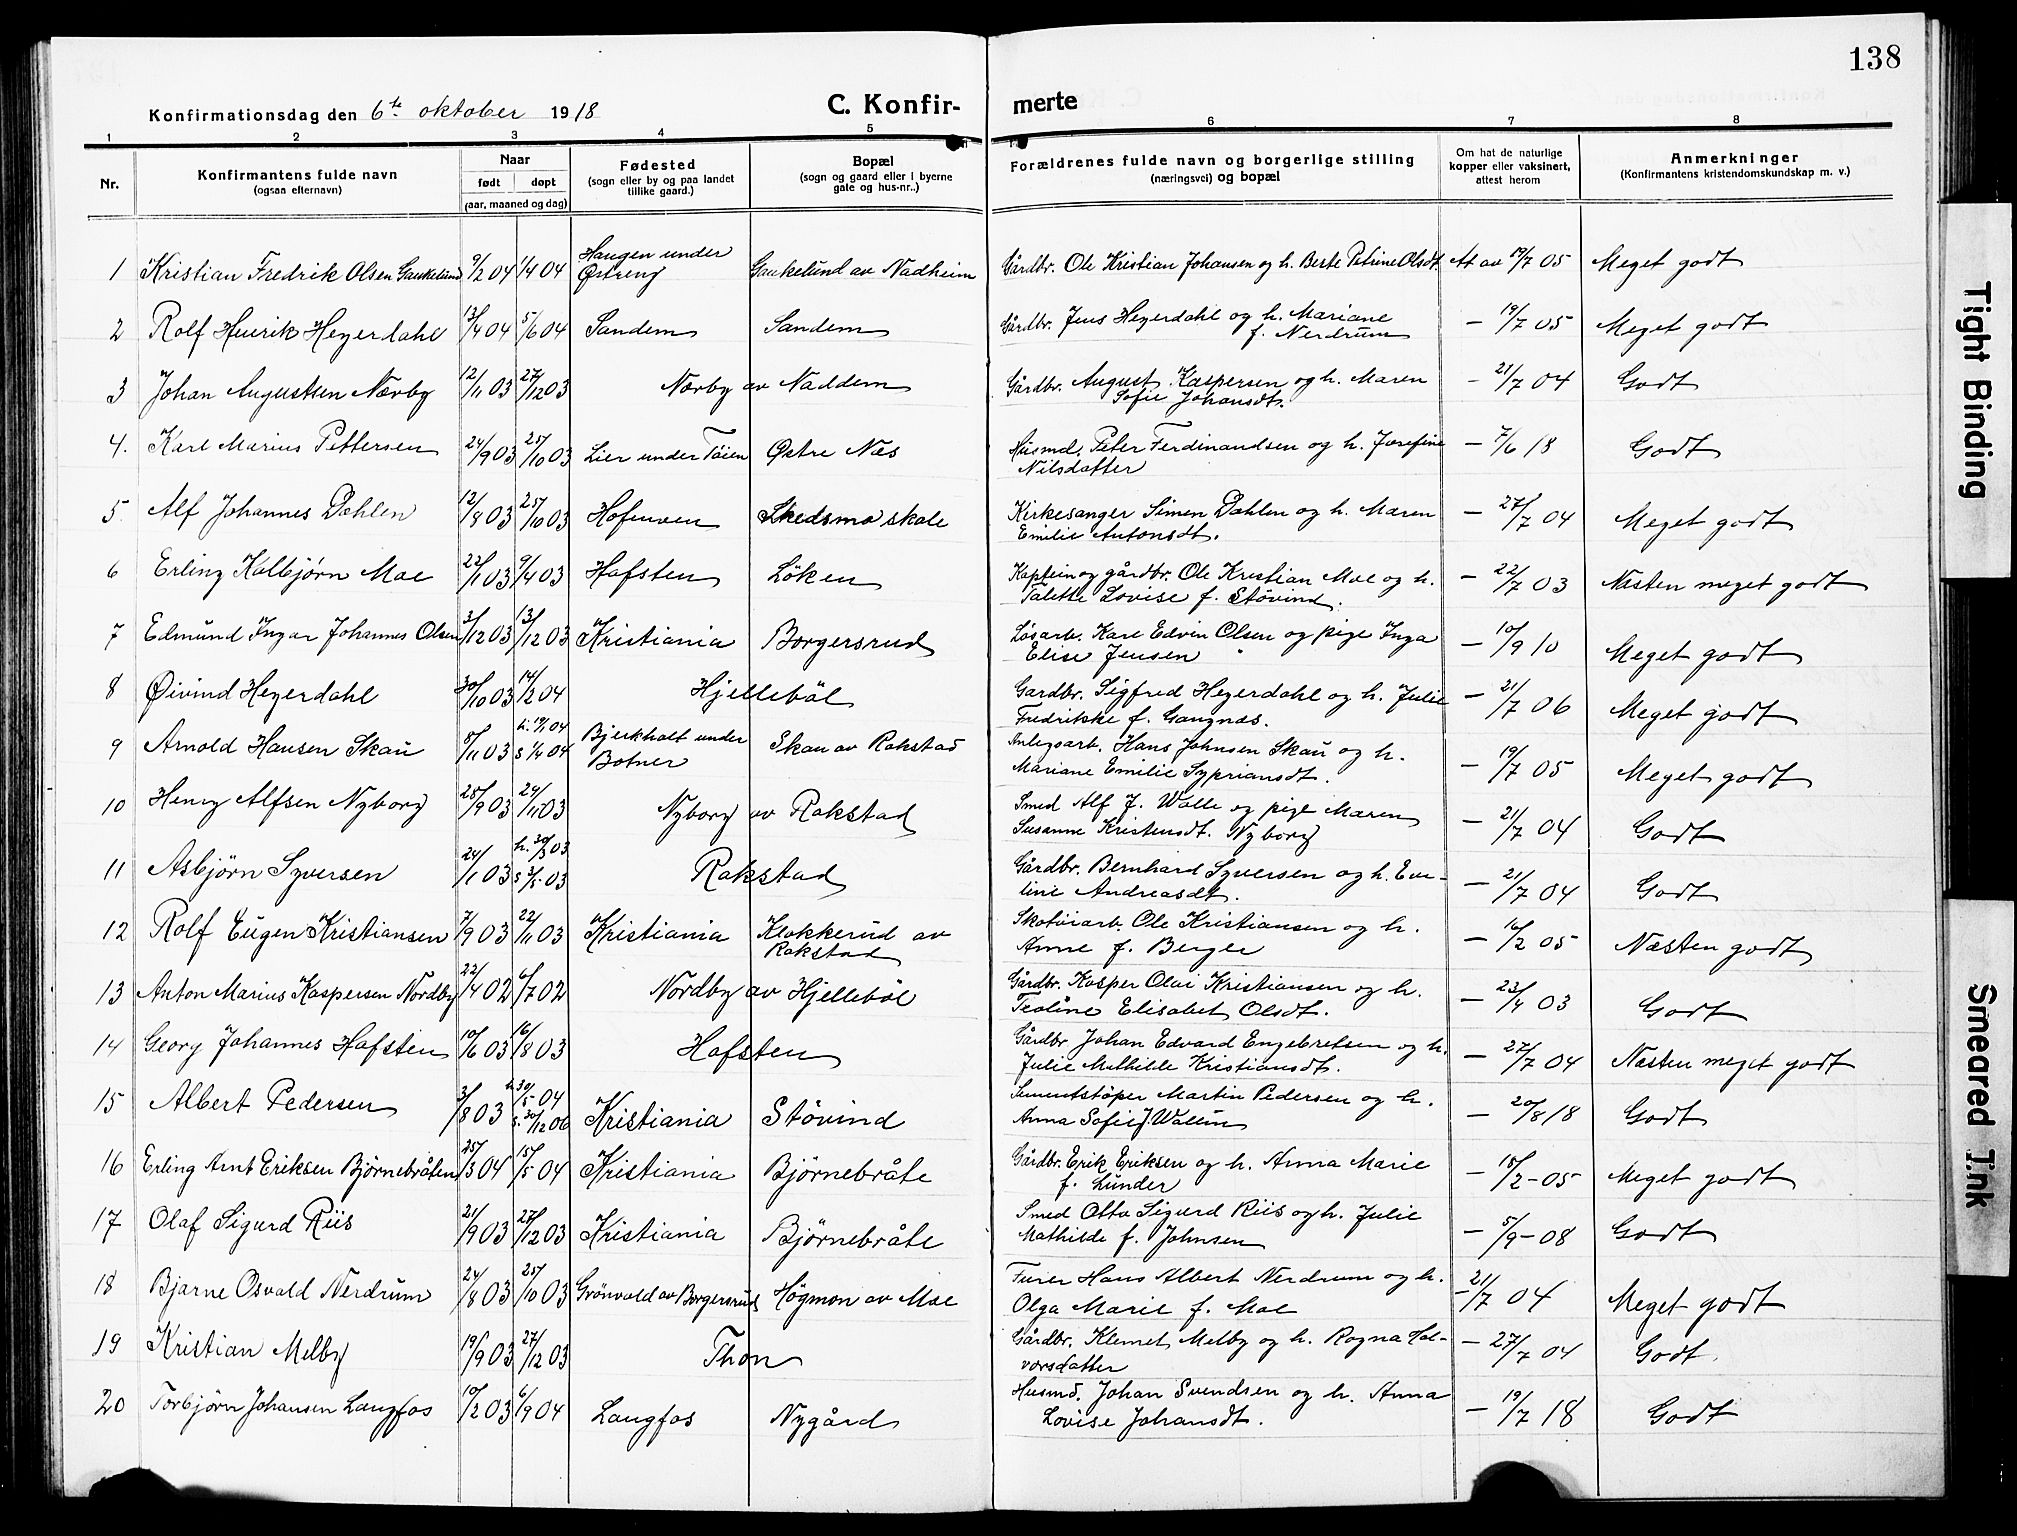 138
Konfirmationsdag den 6te oktober 1918 C. Konfir- merte
1 2 3 4 5 6 7 8
Nr. Konfirmantens fulde navn (ogsaa efternavn) Naar født døpt (aar, maaned og dag) Fødested (sogn eller by og paa landet tillike gaard.) Bopæl (sogn og gaard eller i byerne gate og hus-nr..) Forældrenes fulde navn og borgerlige stilling (næringsvei) og bopæl Om hat de naturlige kopper eller vaksinert, attest herom Anmerkninger (Konfirmantens kristendomskundskap m. v.)
1 Kristian Fredrik Olsen Gaukelund 9/2 04 4/4 04 Haugen under Østreng Gaukelund av Nadheim Gårdbr. Ole Kristian Johansen og h. Berte Petrine Olsdt. At av 19/7 05 Meget godt
2 Rolf Henrik Heyerdahl 13/4 04 5/6 04 Sandem Sandem Gårdbr. Jens Heyerdahl og h. Mariane f. Nerdrum – 19/7 05 Meget godt
3 Johan Augustsen Nærby 12/11 03 27/12 03 Nærby av Naddem Gårdbr. August Kaspersen og h. Maren Sofie Johansdt. – 21/7 04 Godt
4. Karl Marius Pettersen 24/9 03 25/10 03 Lier under Töien Østre Næs Husmd. Peter Ferdinandsen og h. Josefine Nilsdatter – 7/6 18 Godt
5 Alf Johannes Dahlen 12/8 03 25/10 03 Hofmoen Skedsmo skole Kirkesanger Simen Dahlen og h. Maren Emilie Antonsdt. – 27/7 04 Meget godt
6 Erling Kolbjørn Moe 22/1 03 9/4 03 Hafsten Löken Kaptein og gårdbr. Ole Kristian Moe og h. Talette Lovise f. Stövind. – 22/7 03 Næsten meget godt
7 Edmund Ingar Johannes Olsen 3/12 03 13/12 03 Kristiania Borgersrud Lösarb. Karl Edvin Olsen og pige Inga Elise Jensen – 10/9 10 Meget godt
8 Øivind Heyerdahl 30/10 03 14/2 04 Hjelleböl Gardbr. Sigfred Heyerdahl og h. Julie Fredrikke f. Gangnæs. – 21/7 06 Meget godt
9 Arnold Hansen Skau 5/11 03 h. 19/1 04 s 1/4 04 Bjerkholt under Botner Skau av Rakstad Anlegsarb. Hans Johnsen Skau og h. Mariane Emilie Sypriansdt. – 19/7 05 Meget godt
10 Henry Alfsen Nyborg 25/9 03 29/11 03 Nyborg av Rakstad Smed Alf J. Walle og pige Maren Susanne Kristensdt. Nyborg – 21/7 04 Godt
11 Asbjörn Syversen 24/1 03 h. 30/3 03 s 3/5 03 Rakstad Gårdbr. Bernhard Syversen og h. Eveline Andreasdt. – 21/7 04 Godt
12 Rolf Eugen Kristiansen 7/9 03 22/11 03 Kristiania Klokkerud av Rakstad Skotöiarb. Ole Kristiansen og h. Anne f. Berger – 16/2 05 Næsten godt
13 Anton Marius Kaspersen Nordby 22/4 02 6/7 02 Nordby av Hjelleböl Gårdbr. Kasper Olai Kristiansen og h. Teoline Elisabet Olsdt. – 23/4 03 Godt
14 Georg Johannes Hafsten 10/6 03 16/8 03 Hafsten Gårdbr Johan Edvard Engebretsen og h. Julie Mathilde Kristiansdt. – 27/7 04 Næsten meget godt
15 Albert Pedersen 3/8 03 h. 30/5 04 s. 30/12 06 Kristiania Stövind Sementstöper Martin Pedersen og h. Anna Sofie f. Wallin – 20/8 18 Godt
16 Erling Arnt Eriksen Björnebråten 25/3 04 15/5 04 Kristiania Björnebråte Gårdbr. Erik Eriksen og h. Anna Marie f. Lunder – 15/2 – 05 Meget godt
17 Olaf Sigurd Riis 21/9 03 27/12 03 Kristiania Björnebråte Smed Otto Sigurd Riis og h. Julie Mathilde f. Johnsen – 5/9 – 08 Godt
18 Bjarne Osvald Nerdrum 24/8 03 25/10 03 Grönvold av Borgersrud Högmon av Moe Furer Hans Albert Nerdrum og h. Olga Marie f. Moe – 21/7 04 Meget godt
19 Kristian Melby 19/9 03 27/12 03 Thon Gårdbr. Klemet Melby og h. Rogna Halvorsdatter – 27/7 04 Godt.
20 Torbjörn Johansen Langfos 10/2 03 6/9 04 Langfos Nygård Husmd. Johan Svendsen og h. Anna Lovise Johansdt. – 19/7 18 Godt
Tight Binding
Smeared Ink